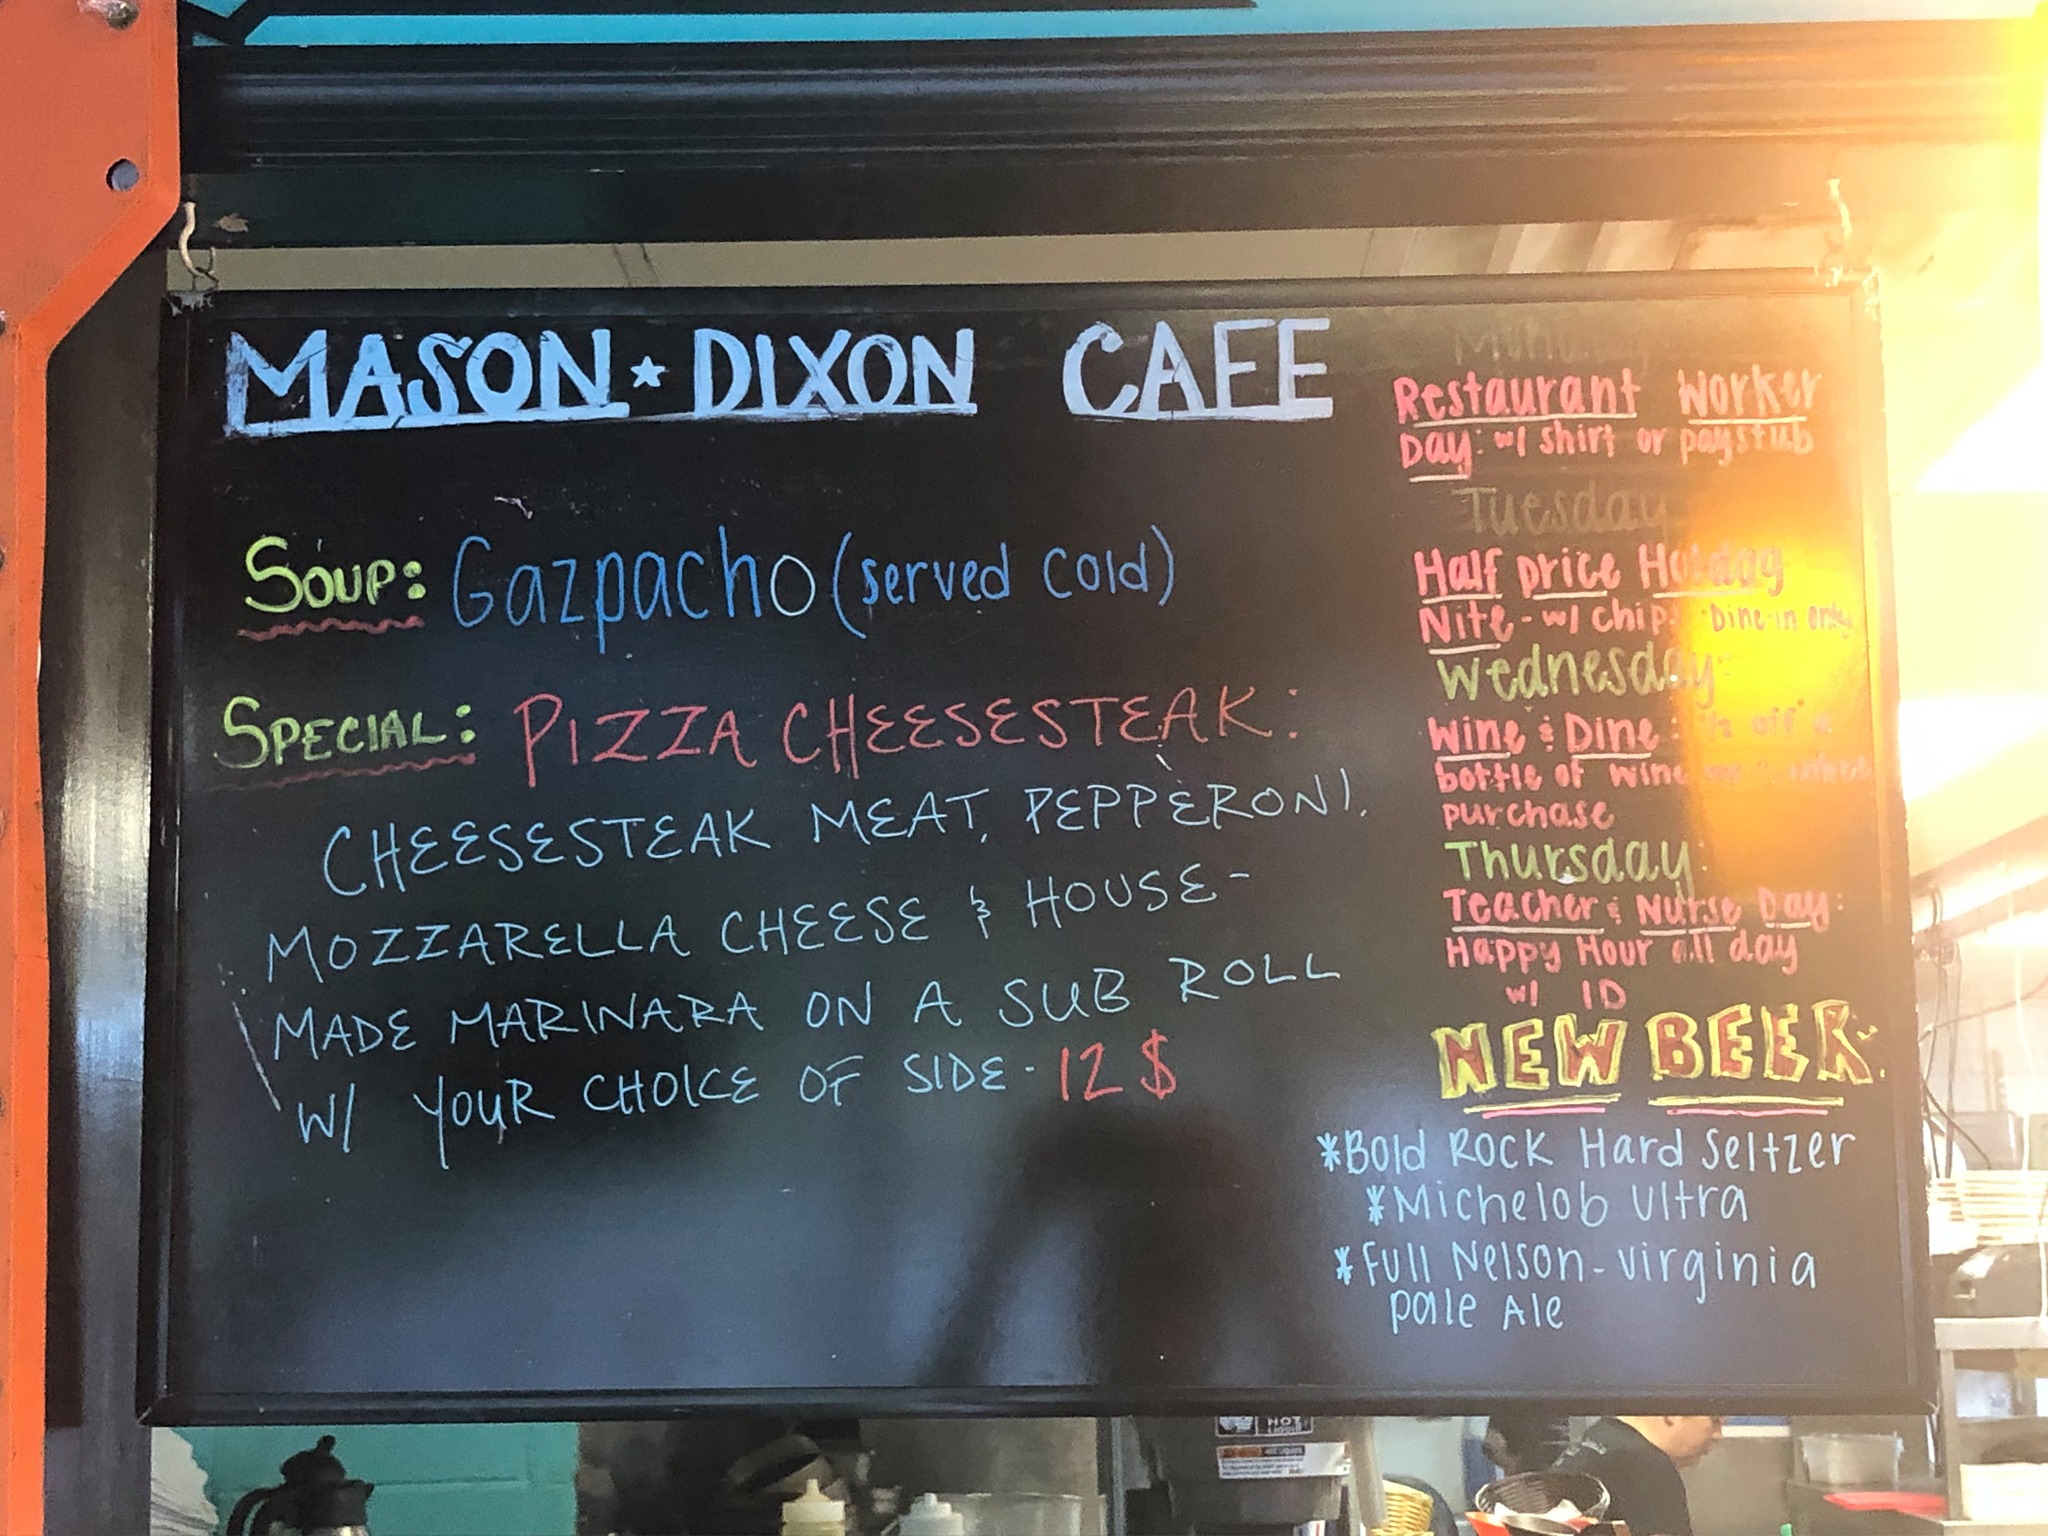 MASON ★ DIXON CAFE
SOUP: Gazpacho (served cold)
SPECIAL: PIZZA CHEESESTEAK:
CHEESESTEAK MEAT, PEPPERONI,
MOZZARELLA CHEESE & HOUSE-
MADE MARINARA ON A SUB ROLL
W/ YOUR CHOICE OF SIDE - 12 $
Monday
Restaurant Worker
Day: w/ shirt or paystub
Tuesday
Half price Hotdog
Nite - w/ chips Dine-in only
Wednesday:
Wine & Dine: 1/2 off a
bottle of wine
purchase
Thursday:
Teacher & Nurse Day:
Happy Hour all day
w/ ID
NEW BEER
*Bold Rock Hard Seltzer
*Michelob Ultra
*Full Nelson - Virginia
pale Ale
HOT